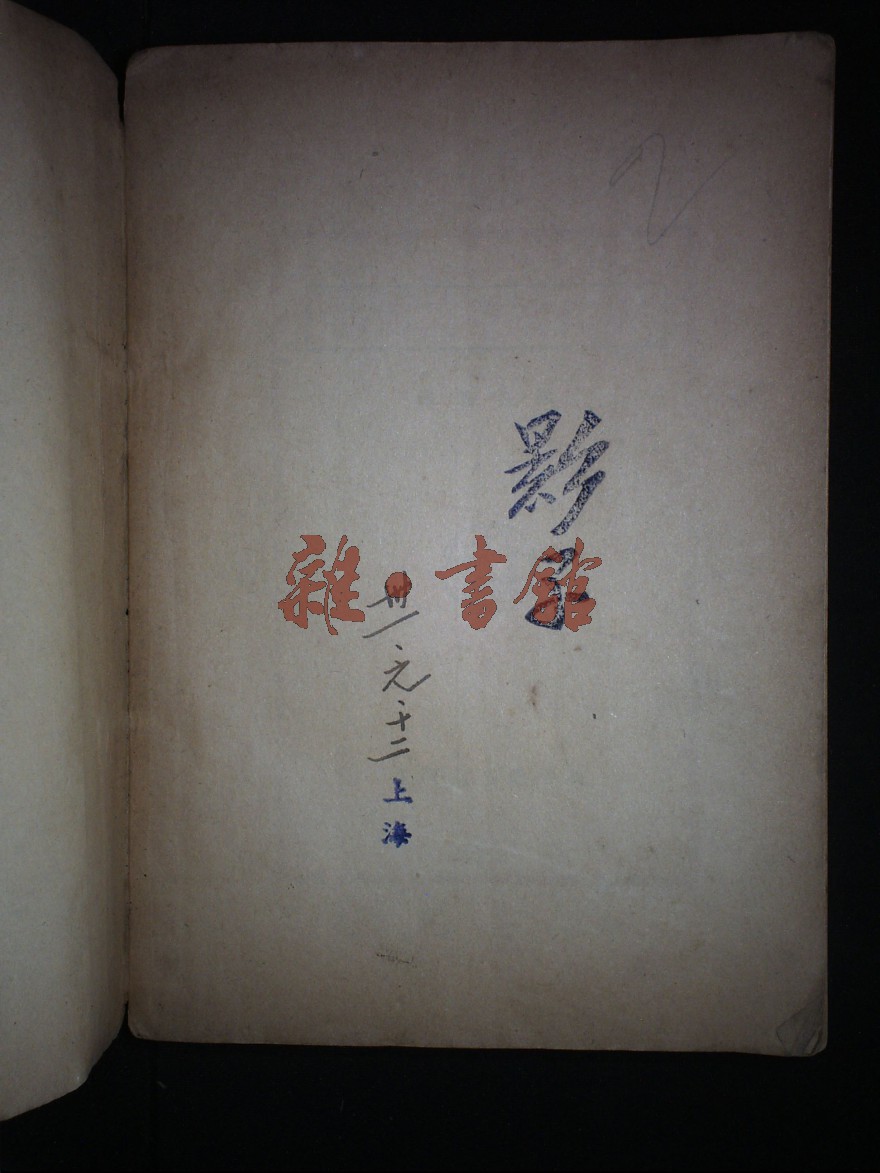 影子
卅一、元、十二
上海
雜·書館